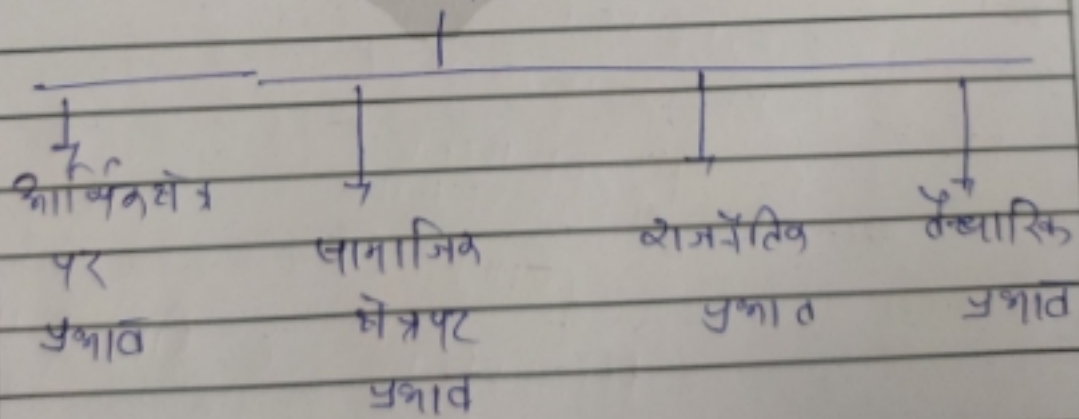 आर्थिक क्षेत्र
पर
प्रभाव
सामाजिक
क्षेत्र पर
प्रभाव
राजनैतिक
प्रभाव
वैचारिक
प्रभाव